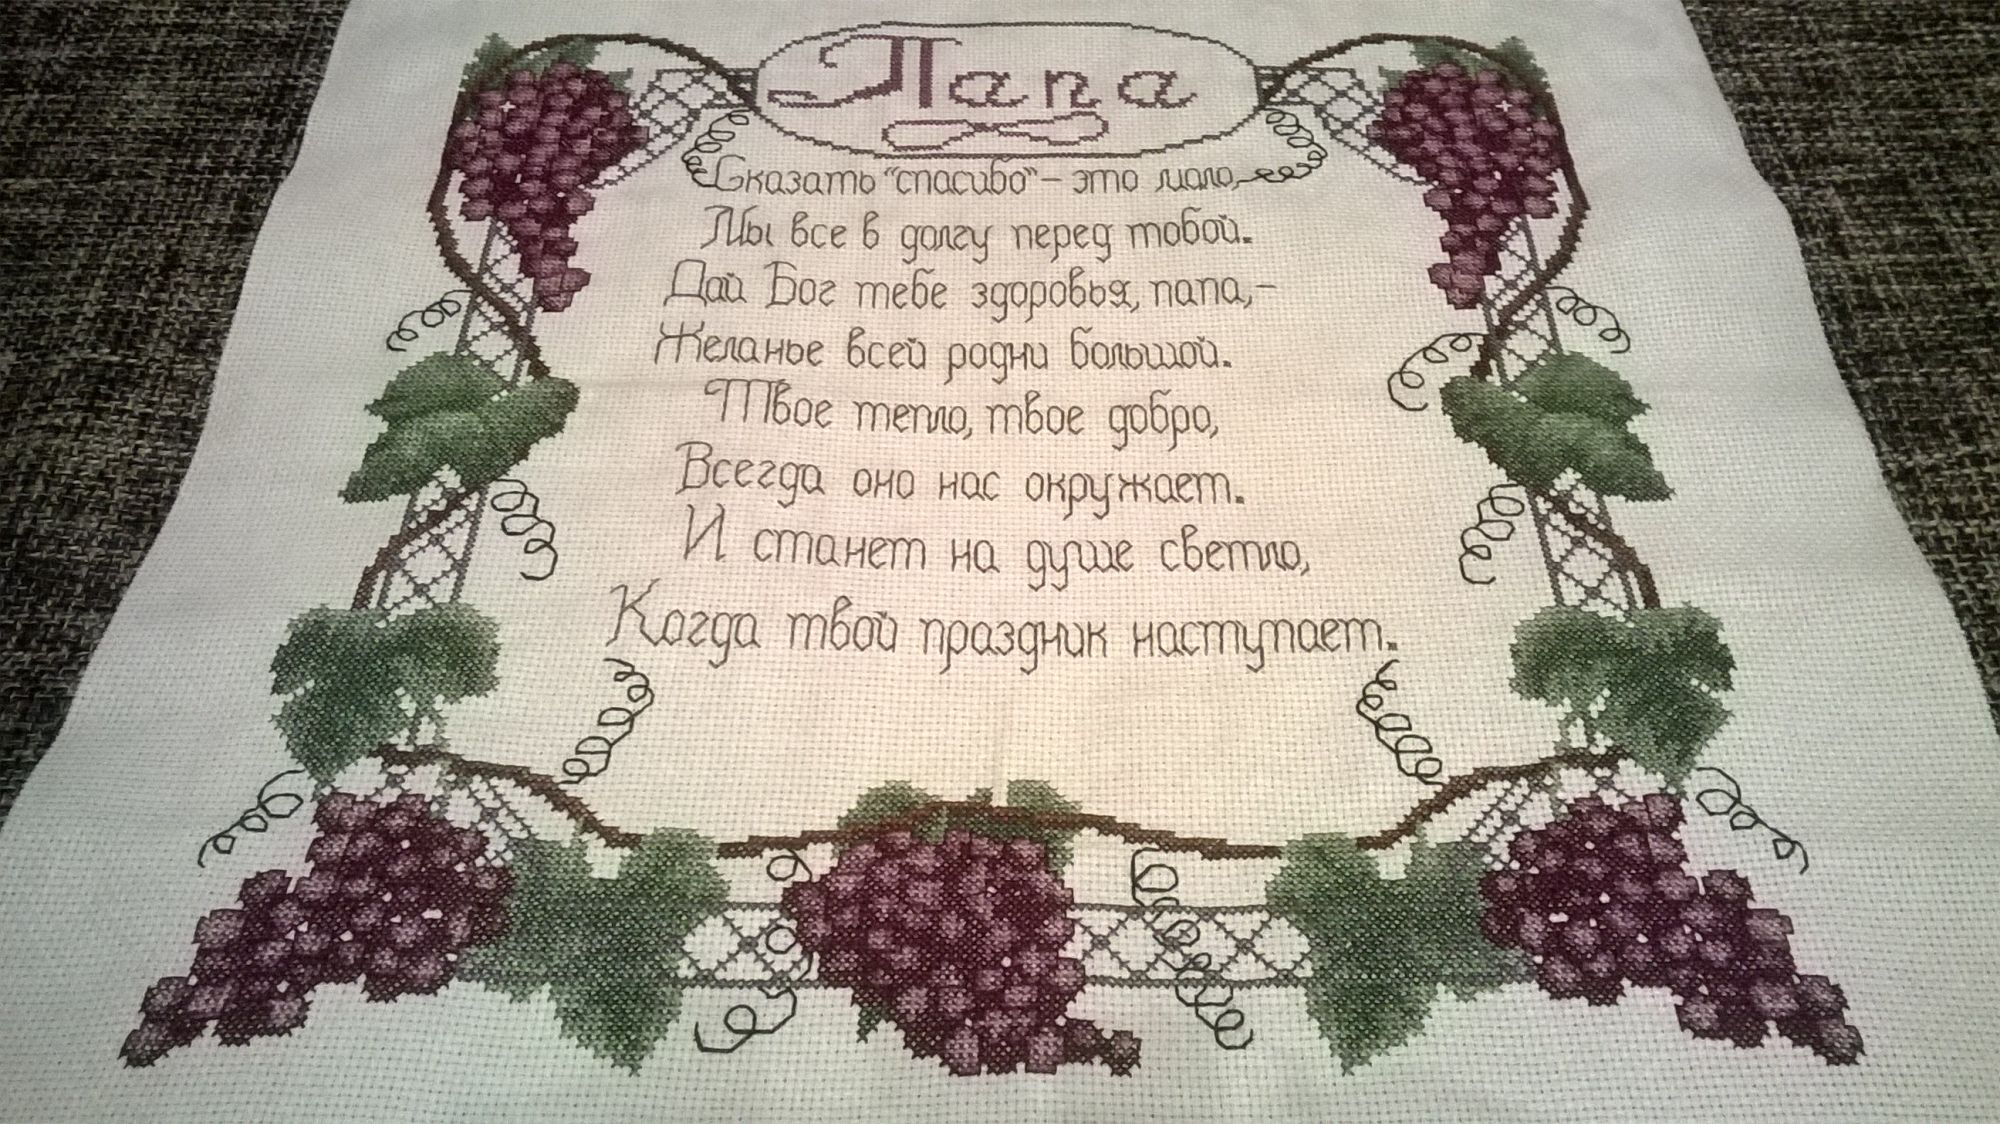 Папа
Сказать "спасибо" - это мало,
Мы все в долгу перед тобой.
Дай Бог тебе здоровья, папа,-
Желанье всей родни большой.
Твое тепло, твое добро,
Всегда оно нас окружает.
И станет на душе светло,
Когда твой праздник наступает.